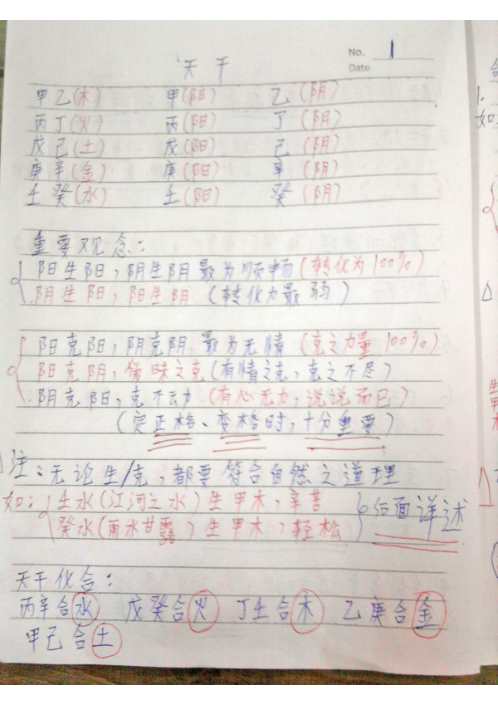 No. 1
Date
天干
甲乙(木) 甲(阳) 乙(阴)
丙丁(火) 丙(阳) 丁(阴)
戊己(土) 戊(阳) 己(阴)
庚辛(金) 庚(阳) 辛(阴)
壬癸(水) 壬(阳) 癸(阴)
重要观念:
阳生阳,阴生阴最为顺畅(转化为100%)
阴生阳,阳生阴(转化力最弱)
阳克阳,阴克阴 最为无情(克之力量100%)
阳克阴,之克(有情之克,克之不尽)
阴克阳,克不去力(有心无力,说说而已)
(定正格、变格时,十分重要)
注:无论生/克,都要符合自然之道理
如:壬水(江河之水)生甲木,辛苦
癸水(雨水甘露)生甲木,轻松
后面详述
天干化合:
丙辛合水 戊癸合火 丁壬合木 乙庚合金
甲己合土